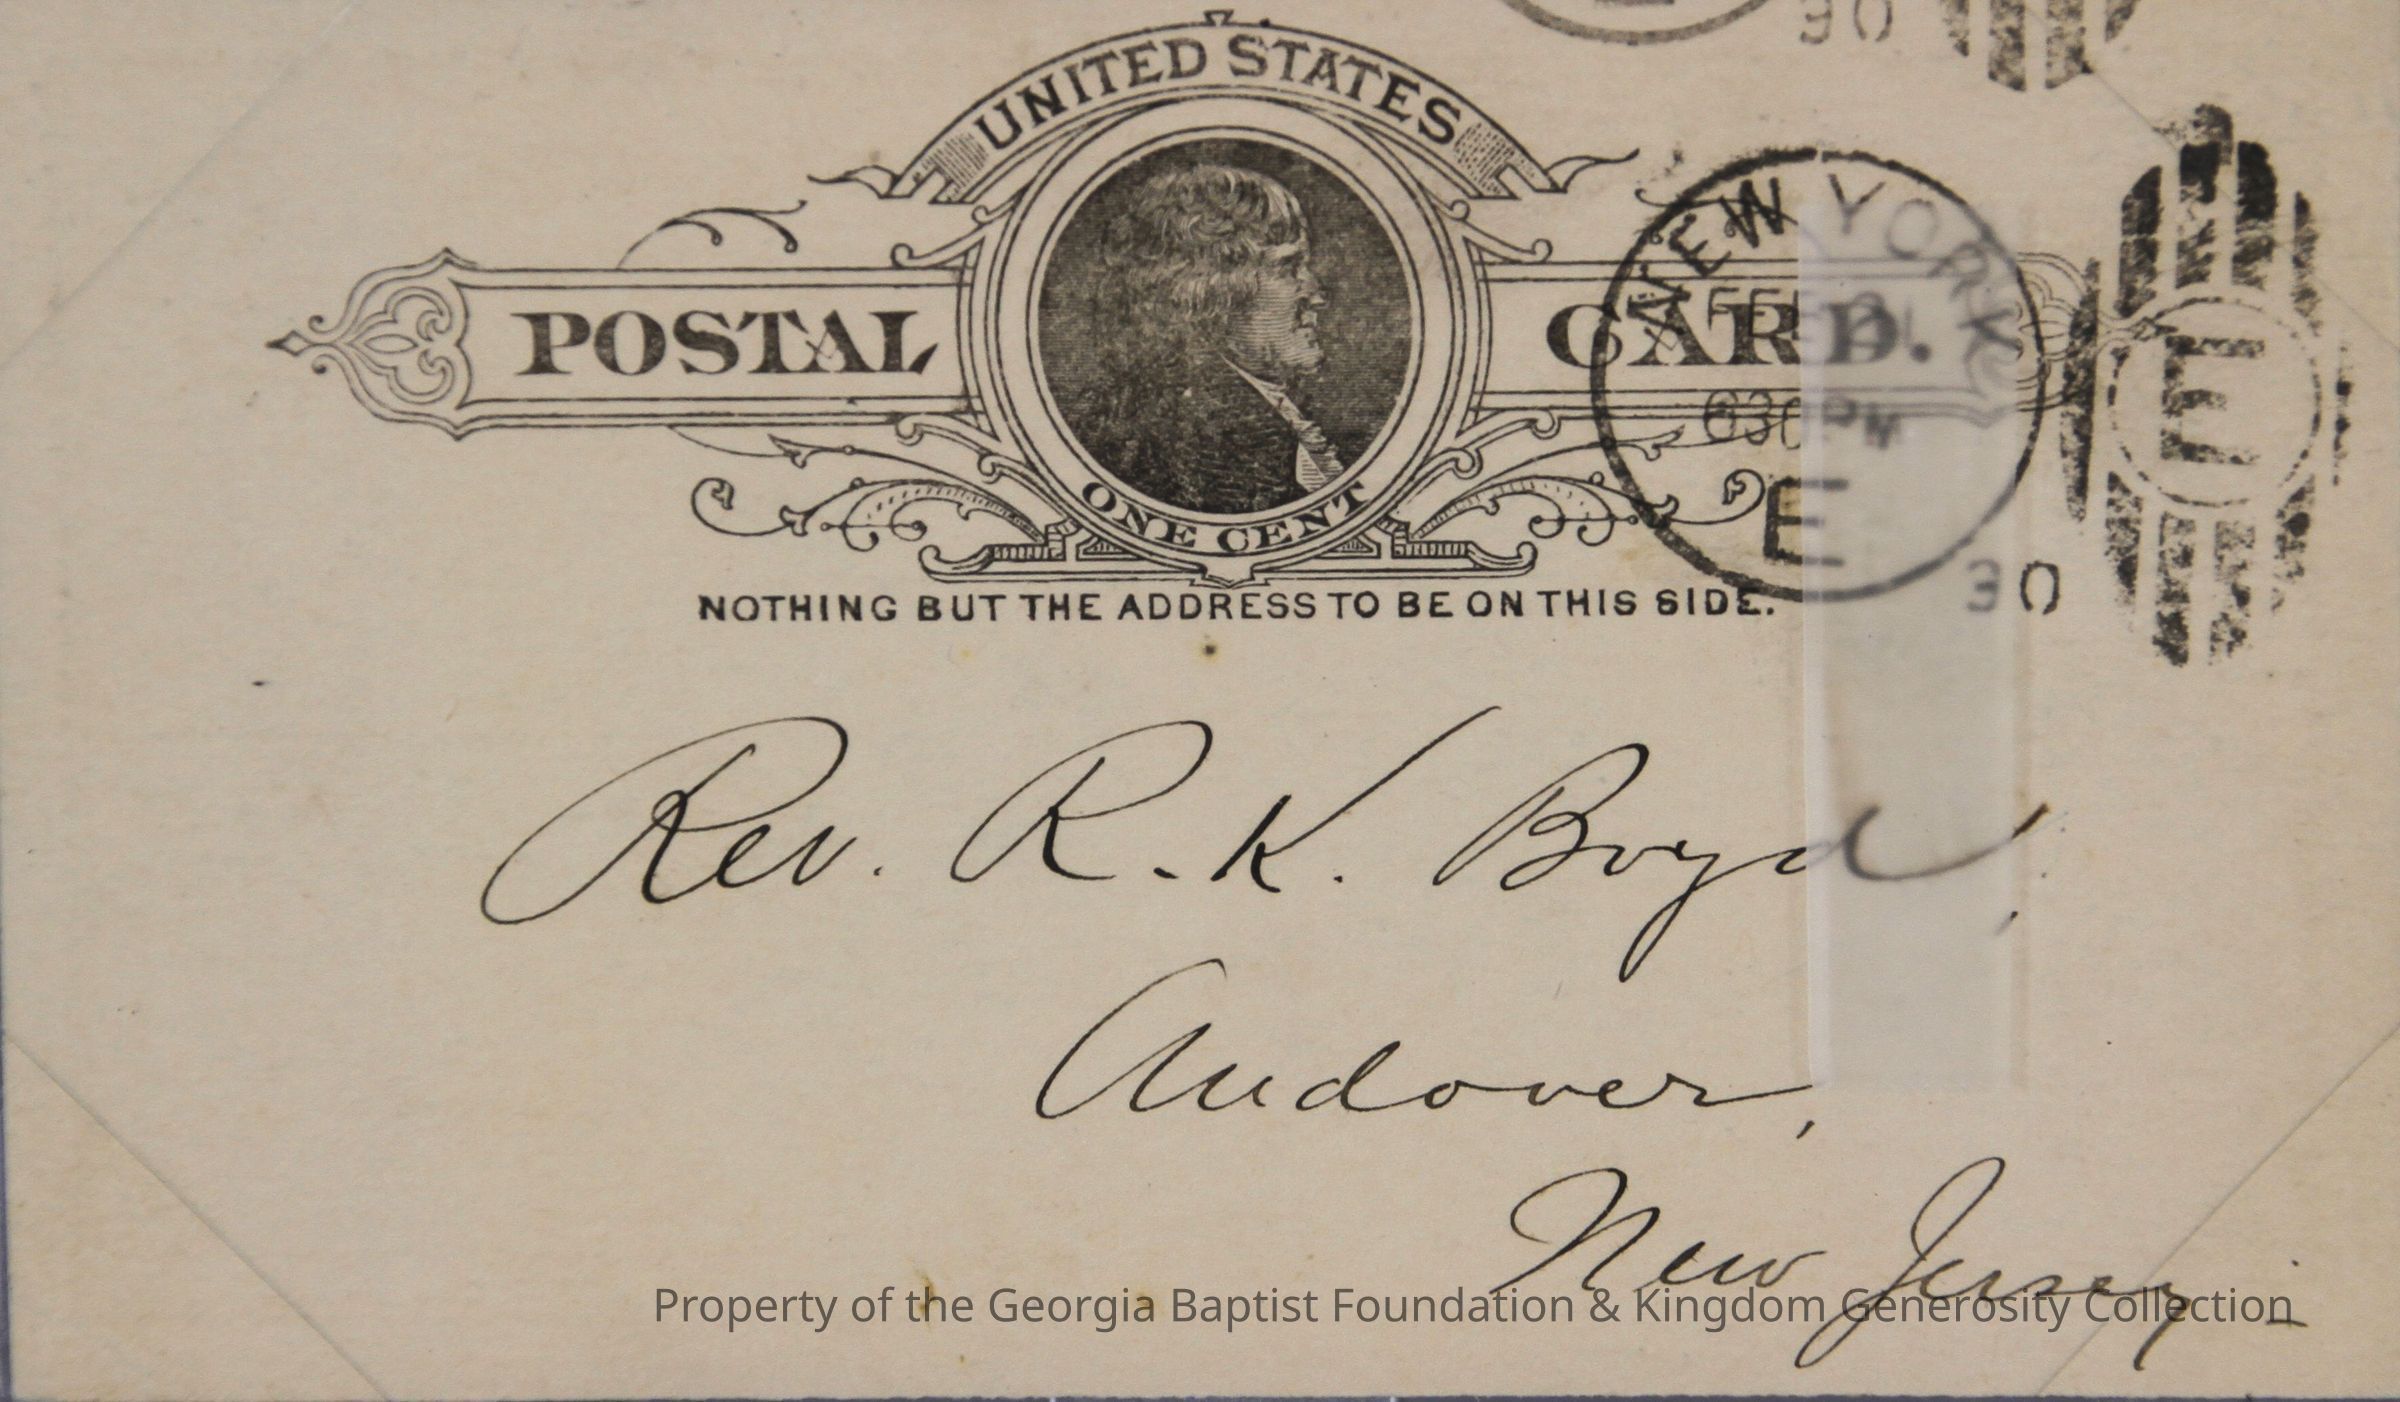 30
UNITED STATES
POSTAL CARD.
ONE CENT
NEW YORK
630 PM
E
30
E
NOTHING BUT THE ADDRESS TO BE ON THIS SIDE.
Rev. R. K. Boyd,
Andover,
New Jersey -
Property of the Georgia Baptist Foundation & Kingdom Generosity Collection